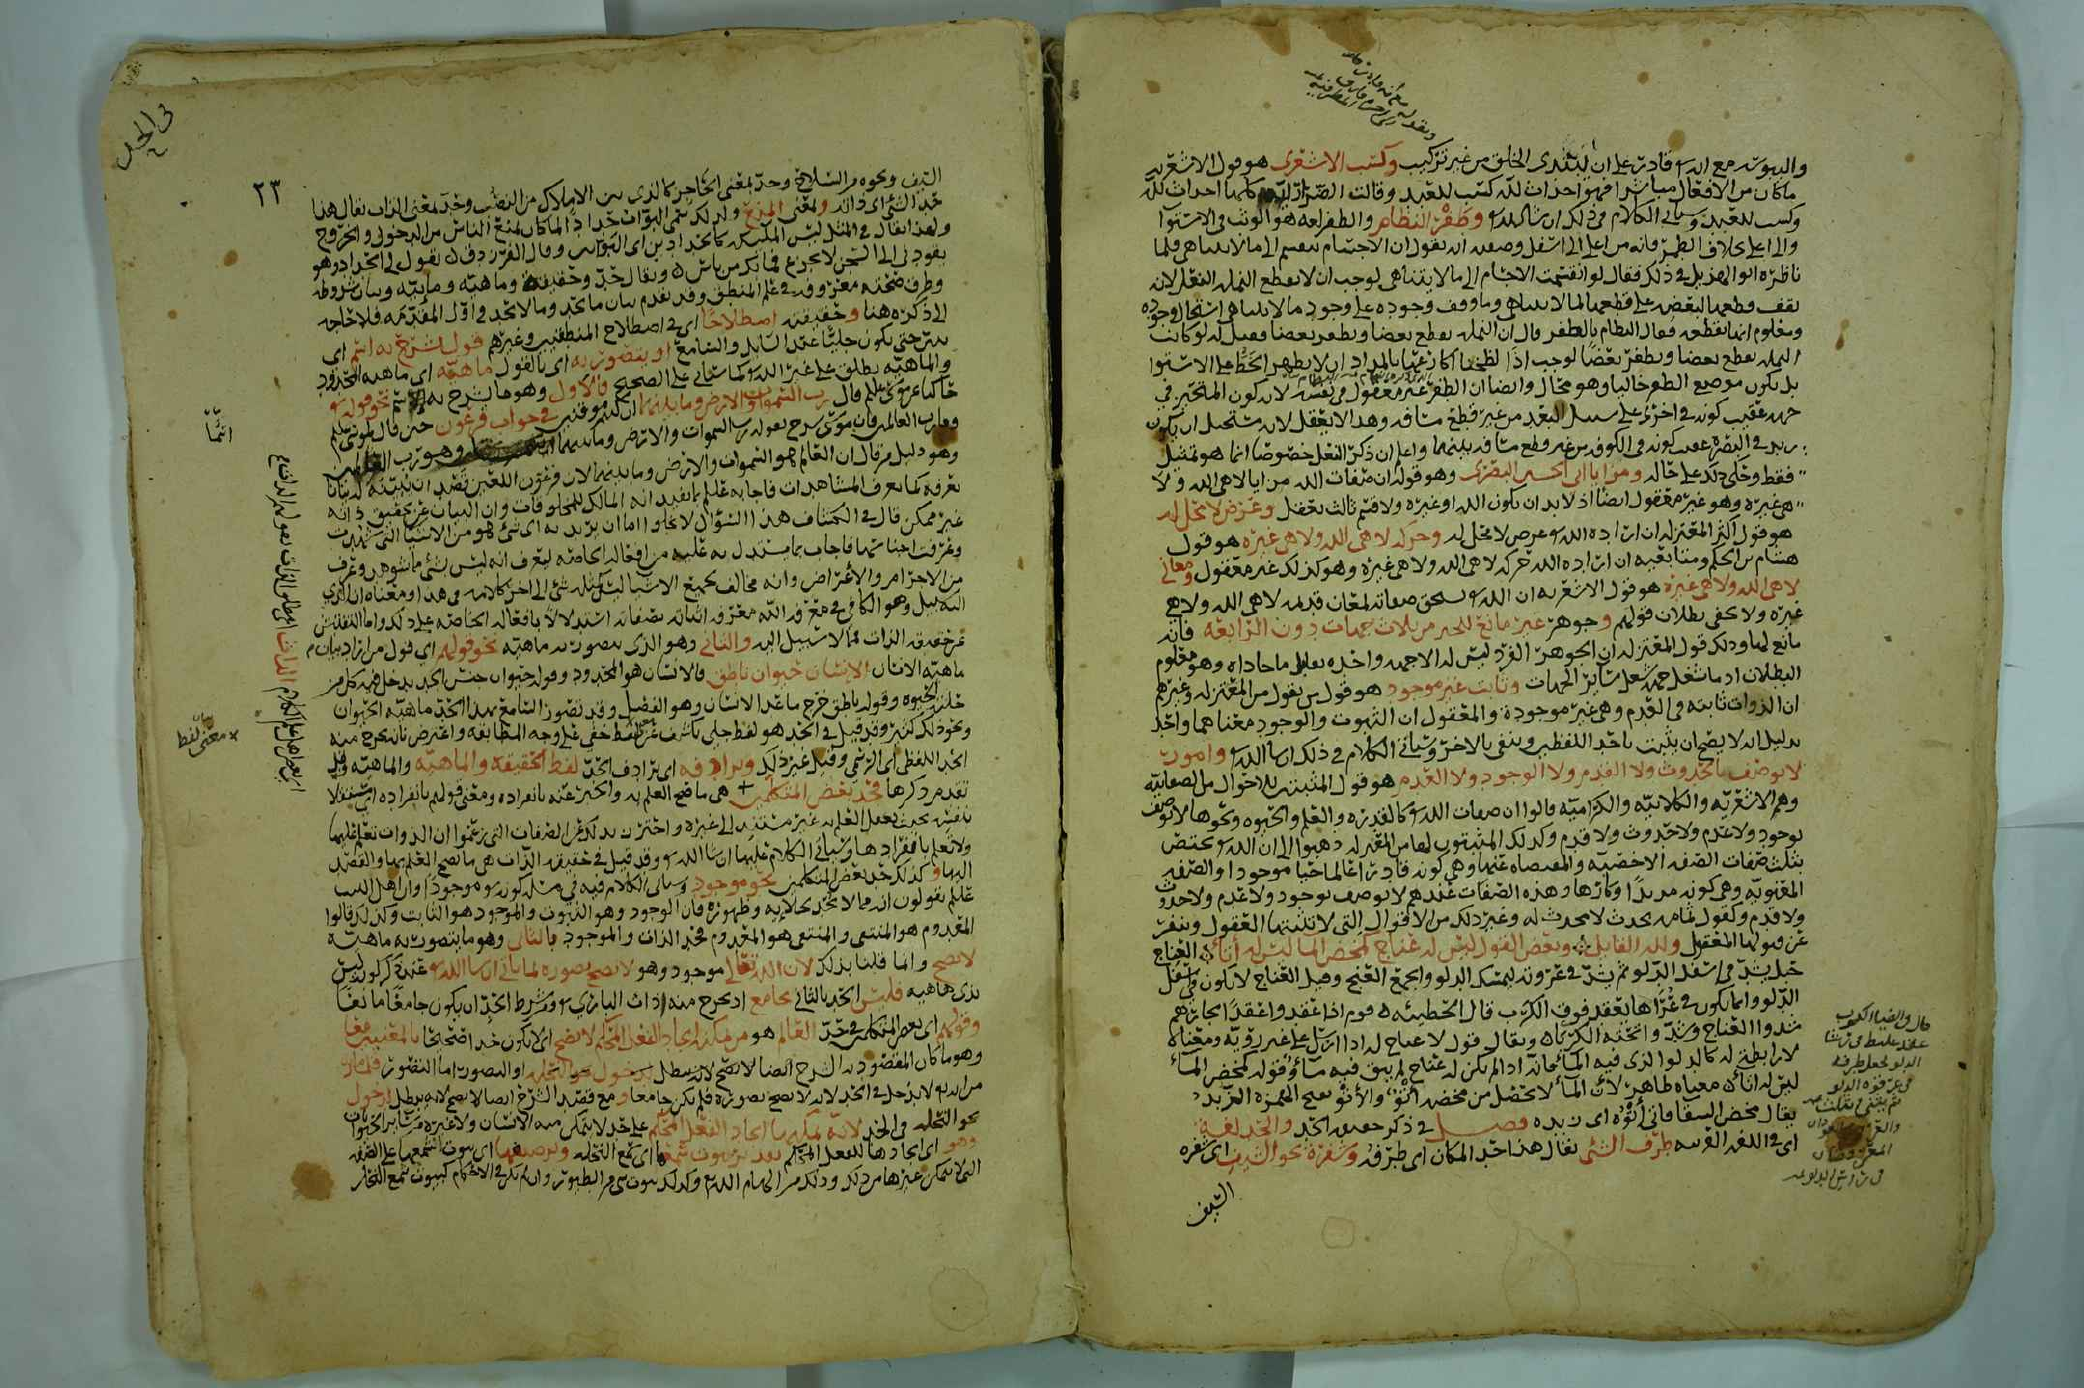 والبهوته مع انه قادر على ان يبتدي الخلق من غير تركيب وكسب الاشعرى هو قول الاشعريه
ما كان من الافعال مباشرا فهو احداث لله كسب للعبد وقالت الضراريه كلها احداث لله
وكسب للعبد وسياتي الكلام في ذلك ان شا الله وطفر النظام والطفر لغه هو الوثب في الاستوا
والى اعلى فانه من اعلى الى اسفل وصفته ان يقول ان الاجسام تنقسم الى ما لا يتناهى فلما
ناظره ابو الهذيل في ذلك فقال لو انقسمت الاجسام الى ما لا يتناهى لوجب ان لا تقطع النمله النعل لانه
يقف قطعها البعض على قطعها لما لا يتناهى وما وقف وجوده على وجود ما لا يتناهى استحال وجوده
ومعلوم انها تقطعه فقال النظام بالطفر قال ان النمله تقطع بعضا وتطفر بعضا فقيل له لو كانت
النمله تقطع بعضا وتطفر بعضا لوجب اذا لطخنا بالمداد ان لا يظهر الخط على الاستوا
بل يكون موضع الطفر خاليا وهو محال وايضا ان الطفر غير معقول في نفسه لانه كون المتحيز في
جهه عقيب كونه في اخرى على سبيل البعد من غير قطع مسافه وهذا لا يعقل لانه يستحيل ان يكون
زيد في البصره عقيب كونه في الكوفه من غير قطع مسافه بينهما واعلم ان ذكر النعل خصوصا انما هو تمثيل
فقط وحكي ذلك على حاله ومزايا ابي الحسين البصرى وهو قوله ان صفات الله مزايا لا هي الله ولا
هي غيره وهو غير معقول ايضا اذ لا بد ان يكون الله او غيره ولا قسم ثالث يعقل وعرض لا محل له
هو قول اكثر المعتزله ان اراده الله عرض لا محل له وحركه لا هي الله ولا هي غيره هو قول
هشام بن الحكم ومتابعيه ان اراده الله حركه لا هي الله ولا هي غيره وهو كذلك غير معقول ومعاني
لا هي الله ولا هي غيره هو قول الاشعريه ان الله يستحق صفاته لمعان قديمه لا هي الله ولا هي
غيره ولا يخفى بطلان قولهم وجوهر غير مانع للحيز من ثلاث جهات دون الرابعه فانه
مانع لها وذلك قول المعتزله ان الجوهر الفرد ليس له الا جهه واحده يقابل ما حاذاه وهو معلوم
البطلان اذ ما شغل جهه شغل سائر الجهات وثابت غير موجود هو قول من يقول من المعتزله وغيرهم
ان الذوات ثابته في القدم وهي غير موجوده والمعقول ان الثبوت والوجود معناهما واحد
بدليل انه لا يصح ان يثبت باحد اللفظين وينفى بالاخر وسياتي الكلام في ذلك ان شا الله وامور
لا توصف بالحدوث ولا القدم ولا الوجود ولا العدم هو قول المثبتين للاحوال من الصفاتيه
وهم الاشعريه والكلابيه والكراميه قالوا ان صفات الله كالقدره والعلم والحيوه ونحوها لا توصف
بوجود ولا عدم ولا حدوث ولا قدم وكذلك المثبتون لها من المعتزله ذهبوا الى ان الله يختص
بثلث صفات الصفه الاخصيه والمقتضاه عنها وهي كونه قادرا عالما حيا موجودا والصفه
المعنويه وهي كونه مريدا او كارها وهذه الصفات عندهم لا توصف بوجود ولا عدم ولا حدوث
ولا قدم وكقول ثمامه محدث لا محدث له وغير ذلك من الاقوال التي لا تثبتها العقول وتنفر
عن قبولها العقول ولله القايل وبعض القول ليس له عناج كمخض الما ليس له أناء العناج
حبل يشد في اسفل الدلو ثم يشد في عروته ليمسك الدلو والجمع العنج وقيل العناج لا يكون في اسفل
الدلو وانما يكون في عراها يعقد فوق الكرب قال الحطيئه قوم اذا عقدوا عقدا لجارهم
شدوا العناج وشدوا فوقه الكربا ويقال قول لا عناج له اذا ارسل على غير رويه ومعناه
لا رابطه له كالدلو الذي فيه الما فانه اذا لم يكن له عناج لم يبق فيه ماء وقوله كمخض الماء
ليس له اناء معناه ظاهر لان الما لا يحصل من مخضه اتو والاتو بفتح الهمزه الزبد
يقال مخض السقا فاتى اتوه اي زبده فصل في ذكر حقيقه الحد والحد لغه
اي في اللغه العربيه طرف الشي يقال هذا حد المكان اي طرفه وشفره نحو السيف اي شفره
السيف
قال في الضيا الكرب
عقد غليظ في رشا
الدلو يجعل طرفه
في عرقوه الدلو
السيف ونحوه من السلاح وحد بمعنى الحاجز كالذي بين الاملاك من النصب وحد بمعنى الذات يقال هذا
حد الشي اي ذاته وبمعنى المنع ولذلك سمي البواب حدادا لما كان يمنع الناس من الدخول والخروج
٢٣
في الحد
انما
معنى لفظ
ولهذا يقال في المثل ليس الملائكه كالحدادين اي البوابين وقال الفرزدق يقول لي الحداد وهو
يقودني الى السجن لا تجزع فما بك من باس ويقال حد وحقيقه وماهيه ومائيه وبيان شروطه
وطرف صحته معروف في علم المنطق وقد تقدم بيان ما يحد وما لا يحد في اول المقدمه فلا حاجه
الى ذكره هنا وحقيقته اصطلاحا اي في اصطلاح المنطقيين وغيرهم قول يشرح به اسم اي
يبين حتى يكون جليا عند السايل والسامع او يتصور به اي بالقول ماهيه اي ماهيه المحدود
والماهيه يطلق على غير الله كما سياتي على الصحيح فالاول وهو ما يشرح به الاسم نحو قوله
حاكيا عن موسى عليلم قال رب السموات والارض وما بينهما ان كنتم موقنين في جواب فرعون حين قال لموسى عليلم
وما رب العالمين فان موسى شرح بقوله رب السموات والارض وما بينهما وهو رب العالمين
وهو دليل من قال ان العالم هو السموات والارض وما بينهما لان فرعون اللعين قصد ان يثبته له بيانا
يعرفه كما يعرف المشاهدات فاجابه عليلم بما يفيد انه المالك للمخلوقات وان البيان عن تحقيق ذاته
غير ممكن قال في الكشاف هذا السؤال لا يخلو اما ان يريد به اي شي هو من الاشيا التي شوهدت
وعرفت اجناسها فاجاب بما يستدل به عليه من افعاله الخاصه ليعرف انه ليس بشي مما شوهد وعرف
من الاجرام والاعراض وانه مخالف لجميع الاشيا ليس كمثله شي الى اخر كلامه في هذا ومعناه ان الذي
اليه سبيل وهو الكافي في معرفه الله معرفه اثباته بصفاته استدلالا بافعاله الخاصه على ذلك واما التفتيش
عن حقيقه الذات فما لا سبيل اليه والثاني وهو الذي يتصور به ماهيه نحو قولهم اي قول من اراد بيان
ماهيه الانسان الانسان حيوان ناطق فالانسان هو المحدود وقوله حيوان جنس الحد يدخل فيه كل من
حلته الحيوه وقوله ناطق خرج ما عدا الانسان وهو الفصل وقد تصور السامع بهذا الحد ماهيه الحيوان
ونحو ذلك كثير وقد قيل في الحد هو لفظ جلي كاشف عن لفظ خفي على وجه المطابقه واعترض بانه يخرج منه
الحد اللفظي اي الرسمي وقيل غير ذلك ويرادفه اي يرادف الحد لفظ الحقيقه والماهيه والماهيه وقد
تقدم ذكرها فحد بعض المتكلمين هي ما صح العلم به والخبر عنه بانفراده ومعنى قولهم بانفراده اي مستقلا
بنفسه بحيث يعقل العلم به غير مستند الى غيره واحترز بذلك عن الصفات التي زعموا ان الذوات تعلم عليها
ولا تعلم بانفرادها وسياتي الكلام عليها ان شا الله وقد قيل في حقيقه الذات هي ما يصح العلم بها والقصد
اليها وكذلك حد بعض المتكلمين نحو موجود وسياتي الكلام فيه في مسئله كونه موجودا وان اهل البيت
عليلم يقولون انه مما لا يحد لجلائه وظهوره فان الوجود وهو الثبوت والموجود هو الثابت وكذلك قالوا
المعدوم هو المنتفي والمنتفي هو المعدوم فحد الذات والموجود بالثاني وهو ما يتصور به ماهيته
لا يصح وانما قلنا بذلك لان الله تعالى موجود وهو لا يصح تصوره لما ياتي ان شا الله عند ذكر كونه ليس
بذي ماهيه فليس الحد بالثاني بجامع اذ يخرج منه ذات الباري وشرط الحد ان يكون جامعا مانعا
وقولهم اي بعض المتكلمين في حد العالم هو من يمكنه ايجاد الفعل المحكم لا يصح اي لا يكون حدا صحيحا بالمعنيين معا
وهو ما كان المقصود به الشرح ايضا لا يصح لانه يبطل بدخول نحو النحله او التصور اما التصور فلما
مر انه لا يدخل في الحد لانه لا يصح تصوره فلم يكن جامعا ومع قصد الشرح ايضا لا يصح لانه يبطل بدخول
نحو النحله في الحد لانه يمكنها ايجاد الفعل المحكم على حد لا يتمكن منه الانسان ولا غيره من ساير الحيوان
وهو اي ايجادها للفعل المحكم تقدير بيوت شمعها اي شمع النحله وترصيفها اي بيوت الشمع على الصفه
التي لا يتمكن غيرها من ذلك وذلك من الهام الله وكذلك بيوت شي من الطيور وان لم يكن في الاحكام كبيوت شمع النحل